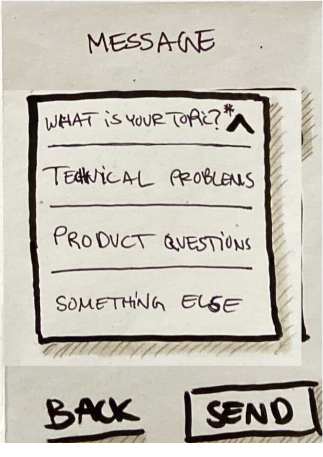 MESSAGE
WHAT iS YOUR TOPiC?*
TECHNiCAL PROBLEMS
PRODUCT QUESTIONS
SOMETHiNG ELSE
BACK SEND